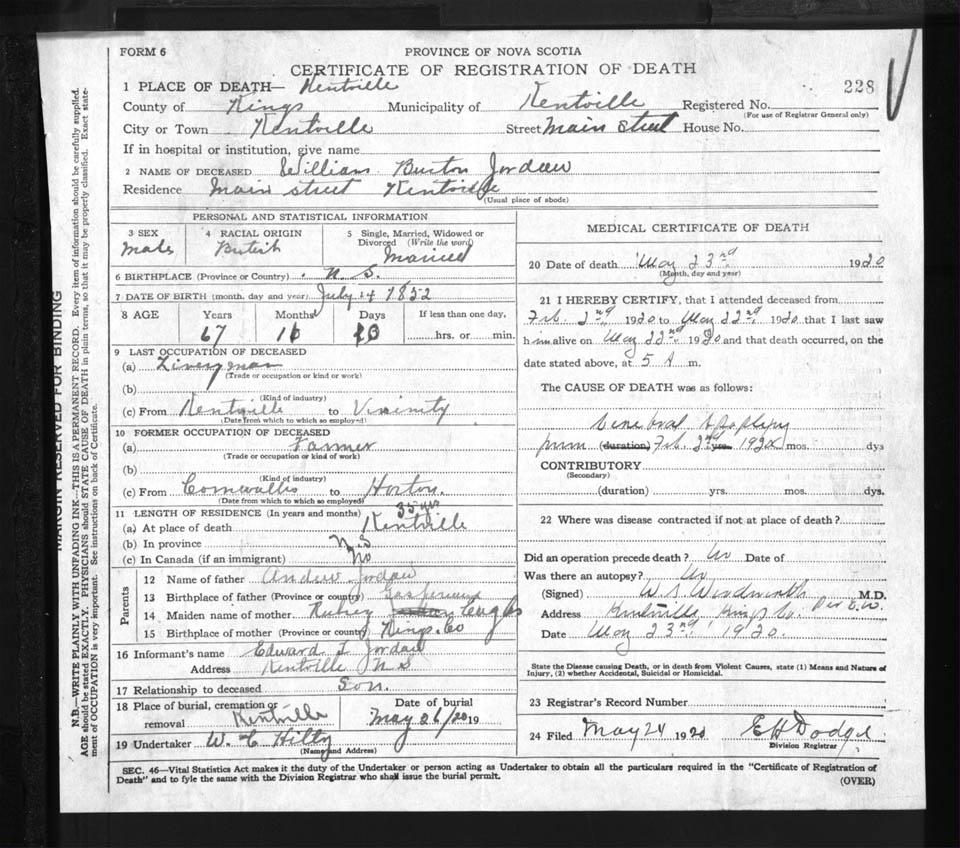 FORM 6
PROVINCE OF NOVA SCOTIA
CERTIFICATE OF REGISTRATION OF DEATH
228
1 PLACE OF DEATH— Kentville
County of Kings Municipality of Kentville Registered No.
(For use of Registrar General only)
City or Town Kentville Street Main Street House No.
If in hospital or institution, give name
2 NAME OF DECEASED William Burton Jordan
Residence Main street Kentville
(Usual place of abode)
PERSONAL AND STATISTICAL INFORMATION
3 SEX 4 RACIAL ORIGIN 5 Single, Married, Widowed or Divorced (Write the word)
Male British Married
6 BIRTHPLACE (Province or Country) N. S.
7 DATE OF BIRTH (month, day and year) July 14 1852
8 AGE Years Months Days If less than one day,
67 10 hrs. or min.
9 LAST OCCUPATION OF DECEASED
(a) Liveryman
(Trade or occupation or kind or work)
(b)
(Kind of industry)
(c) From Kentville to Vicinity
(Date from which to which so employed)
10 FORMER OCCUPATION OF DECEASED
(a) Farmer
(Trade or occupation or kind of work)
(b)
(Kind of industry)
(c) From Cornwallis to Horton.
(Date from which to which so employed)
11 LENGTH OF RESIDENCE (In years and months) 35 yrs
(a) At place of death Kentville
(b) In province N.S
(c) In Canada (if an immigrant) No
Parents
12 Name of father Andrew Jordan
13 Birthplace of father (Province or country) Gaspereaux
14 Maiden name of mother
15 Birthplace of mother (Province or country) Kings. Co
16 Informant's name Edward L Jordan
Address Kentville N S
17 Relationship to deceased Son.
18 Place of burial, cremation or removal Kentville
Date of burial
May 26/20 19
19 Undertaker W. C Hiltz
(Name and Address)
MEDICAL CERTIFICATE OF DEATH
20 Date of death May 23rd 1920
(Month, day and year)
21 I HEREBY CERTIFY, that I attended deceased from
Feb. 2nd 1920 to May 22nd 1920 that I last saw
h im alive on May 22nd 1920 and that death occurred, on the
date stated above, at 5 A m.
The CAUSE OF DEATH was as follows:
Cerebral Apoplexy
from (duration) Feb. 2nd yrs. 1920 mos. dys
CONTRIBUTORY
(Secondary)
(duration) yrs. mos. dys.
22 Where was disease contracted if not at place of death?
Did an operation precede death? No Date of
Was there an autopsy? No
(Signed) W. S Woodworth M.D.
Address Kentville Kings Co. Per E.W.
Date May 23rd 1920.
State the Disease causing Death, or in death from Violent Causes, state (1) Means and Nature of
Injury, (2) whether Accidental, Suicidal or Homicidal.
23 Registrar's Record Number
24 Filed May 24 1920 E H Dodge
Division Registrar
SEC. 46—Vital Statistics Act makes it the duty of the Undertaker or person acting as Undertaker to obtain all the particulars required in the "Certificate of Registration of
Death" and to fyle the same with the Division Registrar who shall issue the burial permit.
(OVER)
MARGIN RESERVED FOR BINDING
N.B.—WRITE PLAINLY WITH UNFADING INK—THIS IS A PERMANENT RECORD. Every item of information should be carefully supplied.
AGE should be stated EXACTLY. PHYSICIANS should STATE CAUSE OF DEATH in plain terms, so that it may be properly classified. Exact state-
ment of OCCUPATION is very important. See instructions on back of Certificate.